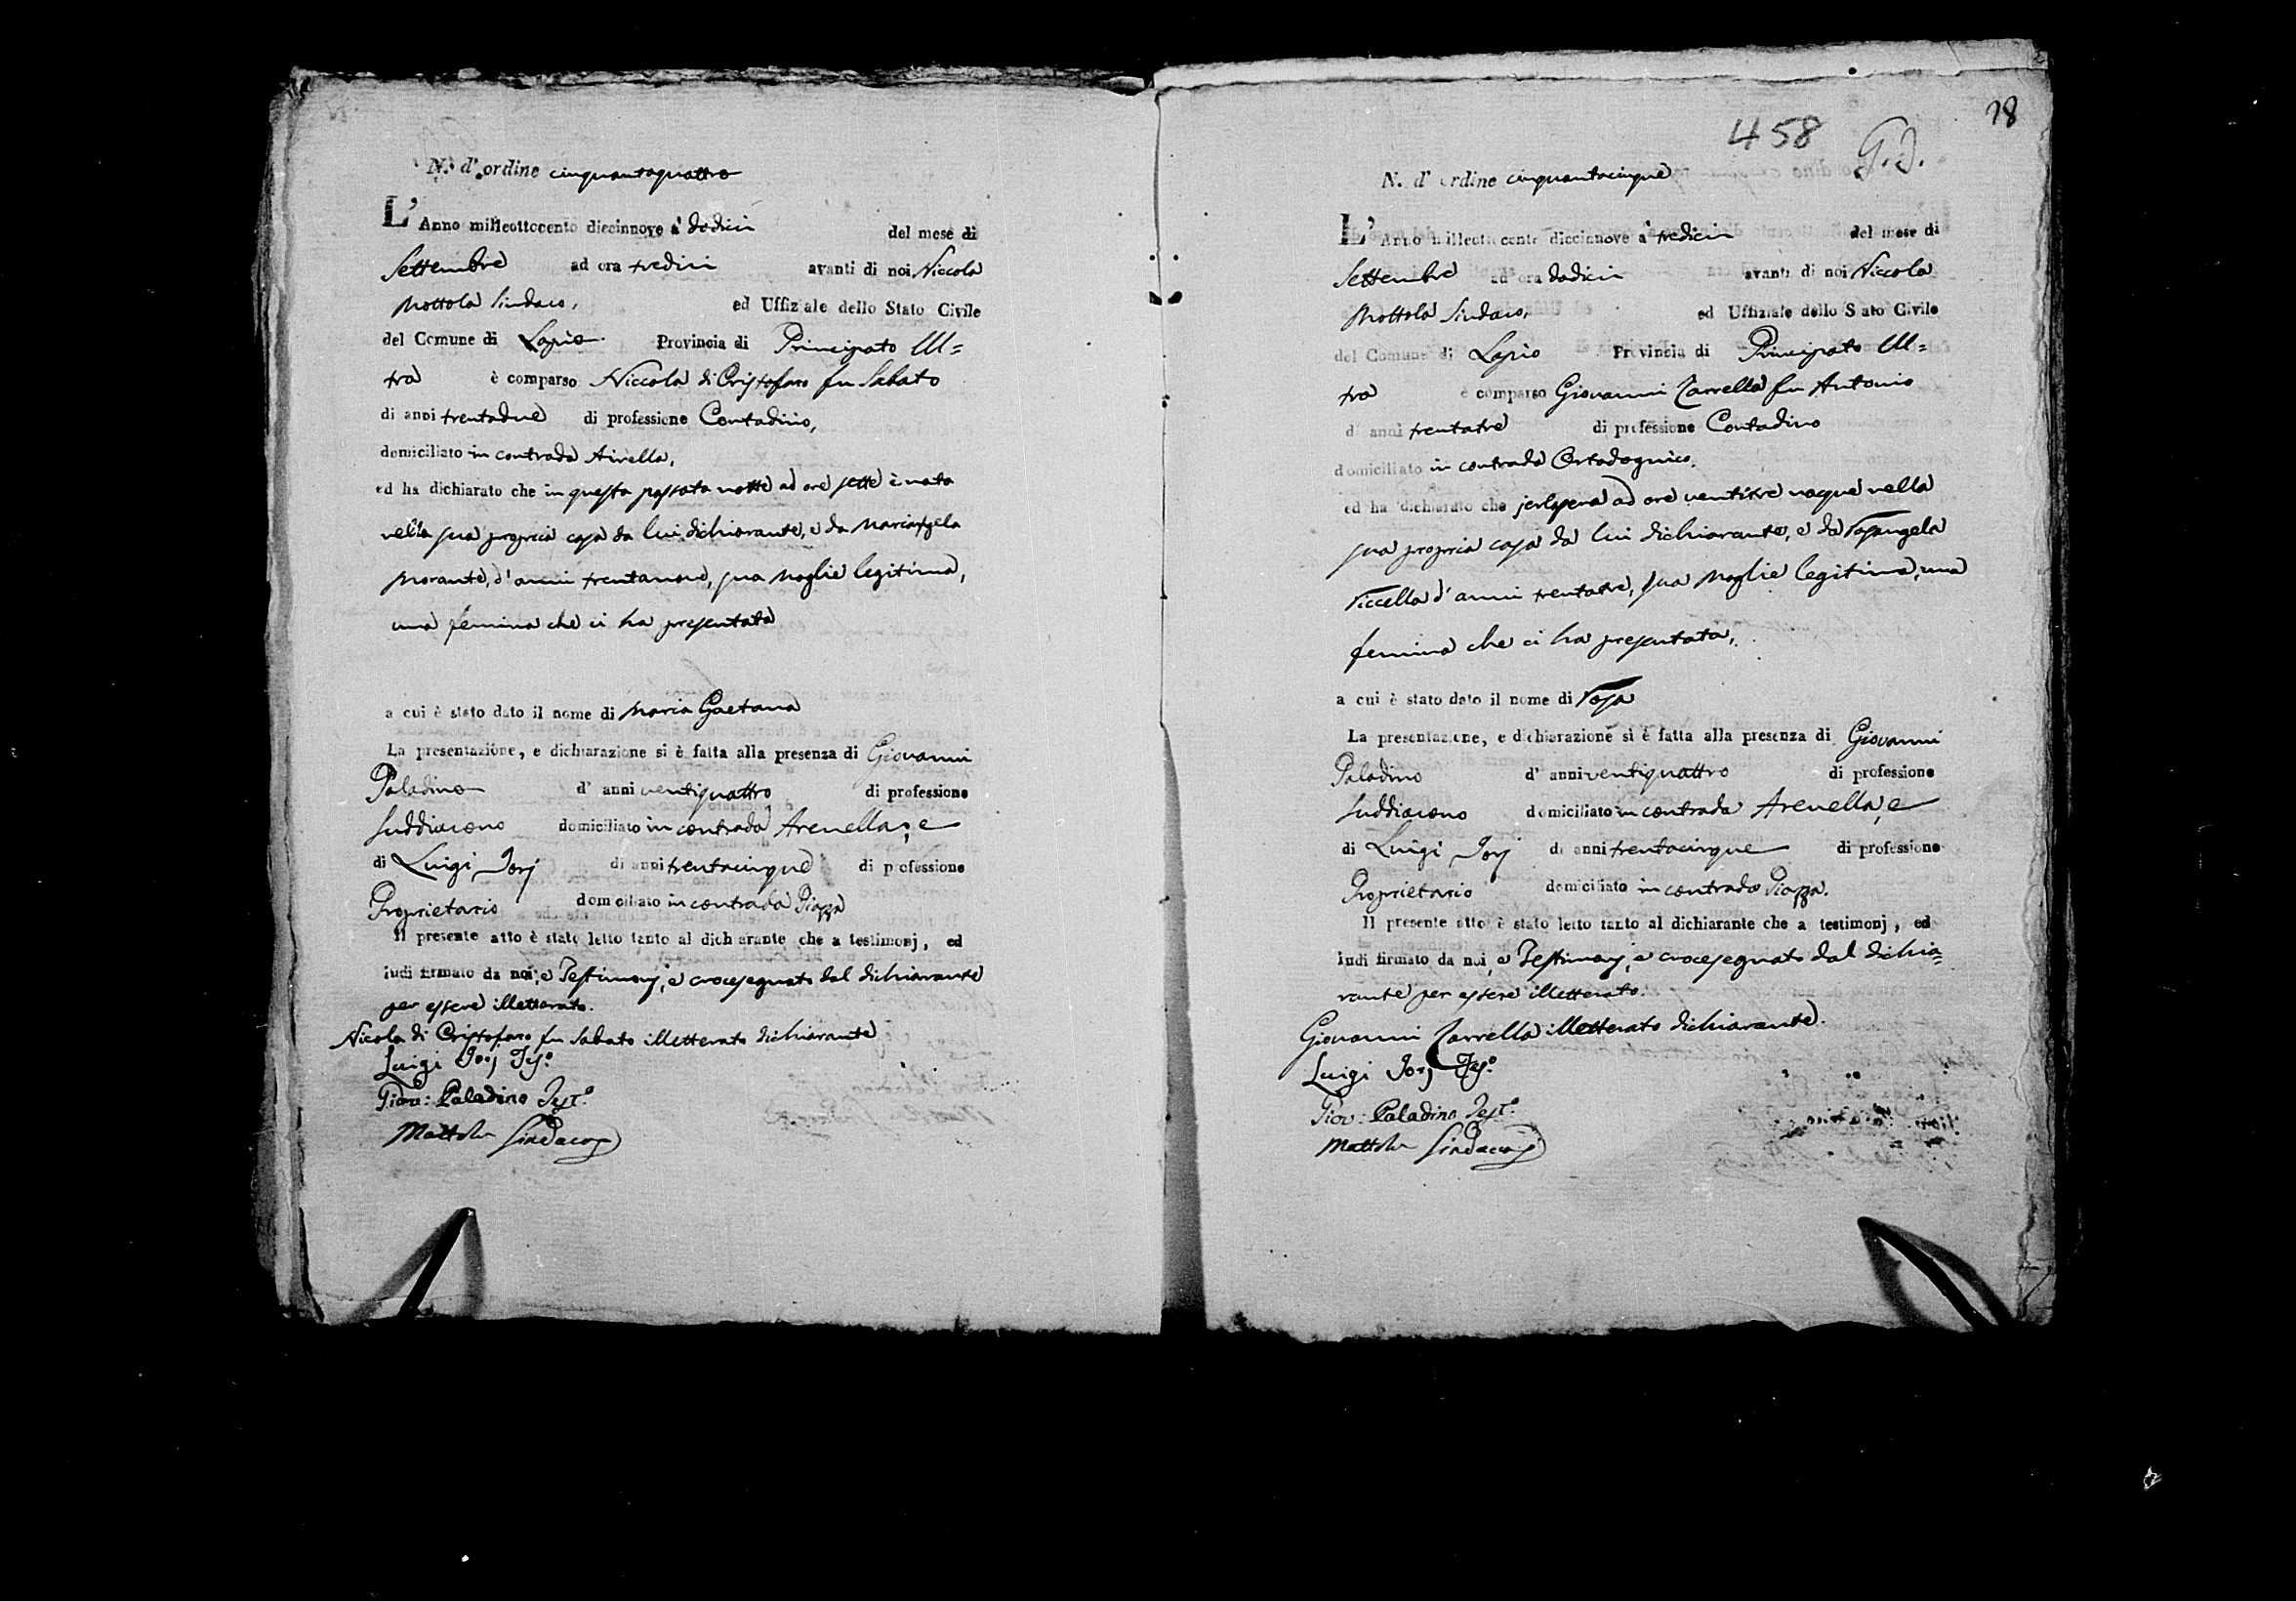 N.º d'ordine cinquantaquattro
L'Anno milleottocento diecinnove a' dodici del mese di
Settembre ad ora tredici avanti di noi Niccola
Mottola Sindaco, ed Uffiziale dello Stato Civile
del Comune di Lapio Provincia di Principato Ul=
tra è comparso Niccola di Cristofaro fu Sabato
di anni trentadue di professione Contadino,
domiciliato in contrada Airella,
ed ha dichiarato che in questa passata notte ad ore sette è nata
nella sua propria casa da lui dichiarante, e da Mariangela
Morante, d'anni trentanove, sua moglie legitima,
una femina che ci ha presentata
a cui è stato dato il nome di Maria Gaetana
La presentazione, e dichiarazione si è fatta alla presenza di Giovanni
Paladino d' anni ventiquattro di professione
Suddiacono domiciliato in contrada Arenella, e
di Luigi Jorj di anni trentacinque di professione
Proprietario domiciliato in contrada Piazza
Il presente atto è stato letto tanto al dichiarante che a testimonj, ed
indi firmato da noi, e Testimonj, e crocesegnato dal dichiarante
per essere illetterato.
Nicola di Cristofaro fu Sabato illetterato dichiarante
Luigi Jorj Tesº.
Giov: Paladino Testº.
Mottola Sindaco
458 G.J. 78
N. d' ordine cinquantacinque
L'Anno milleottocento diecinnove a' tredici del mese di
Settembre ad ora dodici avanti di noi Niccola
Mottola Sindaco, ed Uffiziale dello Stato Civile
del Comune di Lapio Provincia di Principato Ul=
tra è comparso Giovanni Zarrella fu Antonio
d' anni trentatre di professione Contadino
domiciliato in contrada Ortadognico,
ed ha dichiarato che jerlsera ad ore ventitre nacque nella
sua propria casa da lui dichiarante, e da Rosangela
Riccella d'anni trentatre, sua moglie legitima, una
femina che ci ha presentata,
a cui è stato dato il nome di Rosa
La presentazione, e dichiarazione si è fatta alla presenza di Giovanni
Paladino d' anni ventiquattro di professione
Suddiacono domiciliato in contrada Arenella, e
di Luigi Jorj di anni trentacinque di professione
Proprietario domiciliato in contrada Piazza.
Il presente atto è stato letto tanto al dichiarante che a testimonj, ed
indi firmato da noi, e Testimonj, e crocesegnato dal dichia=
rante per essere illetterato.
Giovanni Zarrella illetterato dichiarante.
Luigi Jorj Tesº.
Giov: Paladino Testº.
Mottola Sindaco